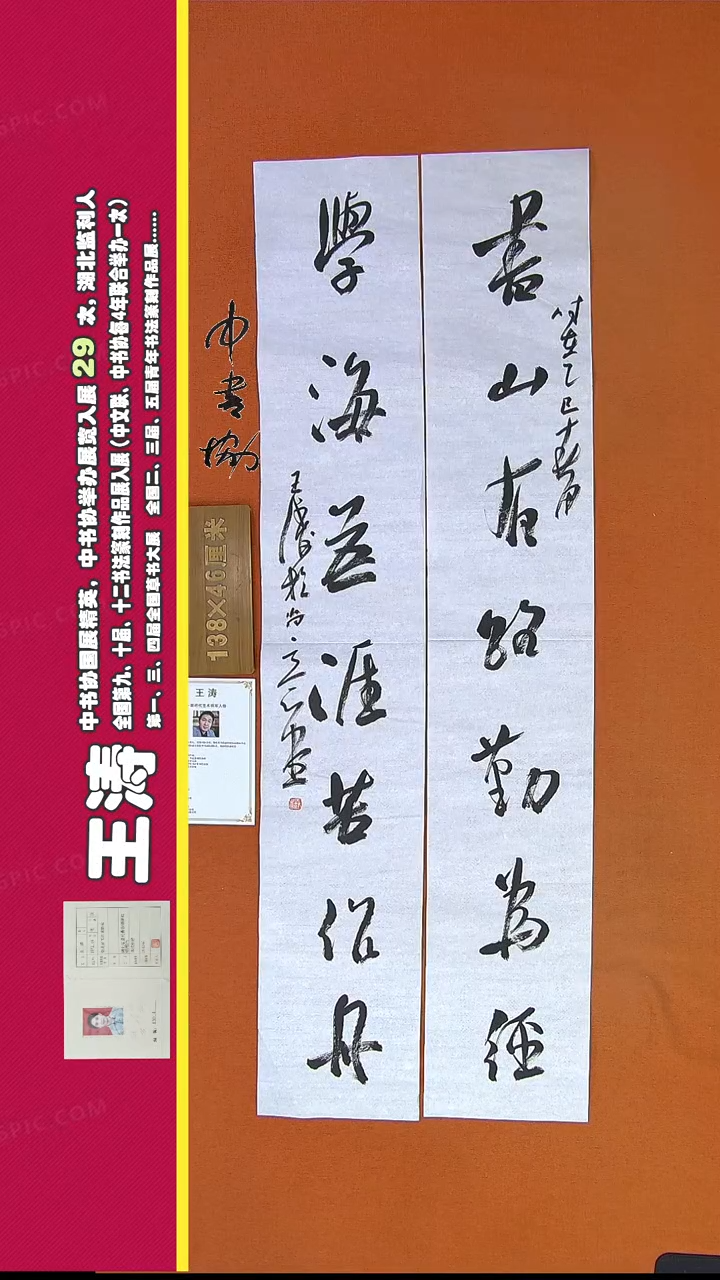 书山有路勤为径
时在乙巳十春月
学海无涯苦作舟
王涛於尚立心画
中书协
138×46厘米
王涛
王涛
中书协国展精英，中书协举办展览入展 29 次，湖北监利人
全国第九、十届、十二书法篆刻作品展入展（中文联、中书协每4年联合举办一次）
第一、三、四届全国草书大展 全国二、三届、五届青年书法篆刻作品展......